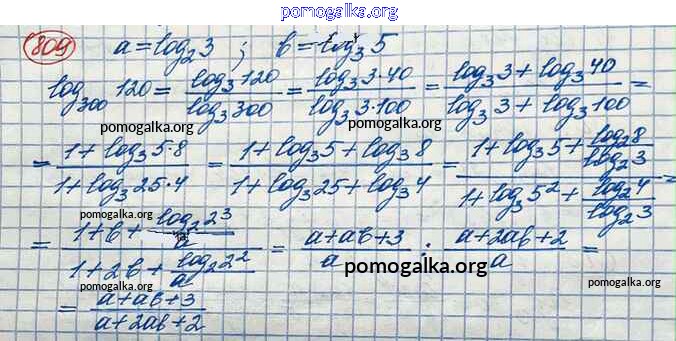 pomogalka.org
809 a = log₂3 ; b = log₃5
pomogalka.org
log₃₀₀120 = log₃120 / log₃300 = log₃3·40 / log₃3·100 = (log₃3 + log₃40) / (log₃3 + log₃100) =
pomogalka.org pomogalka.org pomogalka.org
= (1 + log₃5·8) / (1 + log₃25·4) = (1 + log₃5 + log₃8) / (1 + log₃25 + log₃4) = (1 + log₃5 + log₂8 / log₂3) / (1 + log₃5² + log₂4 / log₂3) =
pomogalka.org pomogalka.org
= (1 + b + log₂2³ / a) / (1 + 2b + log₂2² / a) = (a + ab + 3) / a : (a + 2ab + 2) / a =
pomogalka.org pomogalka.org
= (a + ab + 3) / (a + 2ab + 2)
pomogalka.org pomogalka.org